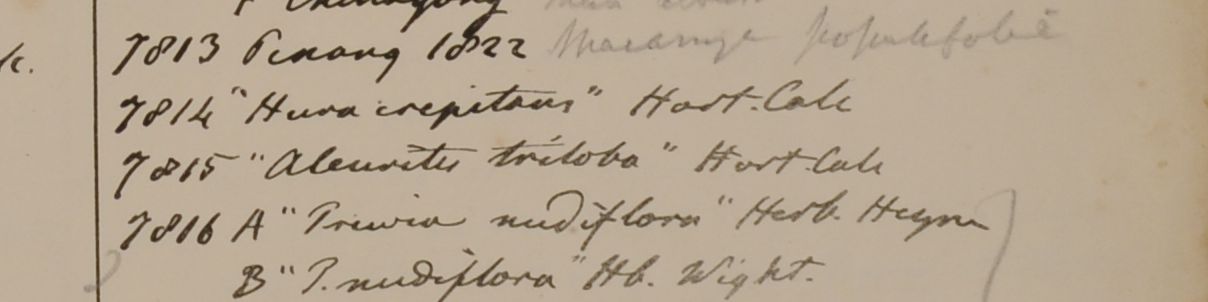 7813 Penang 1822 Macaranga populifolia
7814 "Hura crepitans" Hort. Calc
7815 "Aleurites triloba" Hort. Calc
7816 A "Trewia nudiflora" Herb. Heyne
B "T. nudiflora" Hb. Wight.